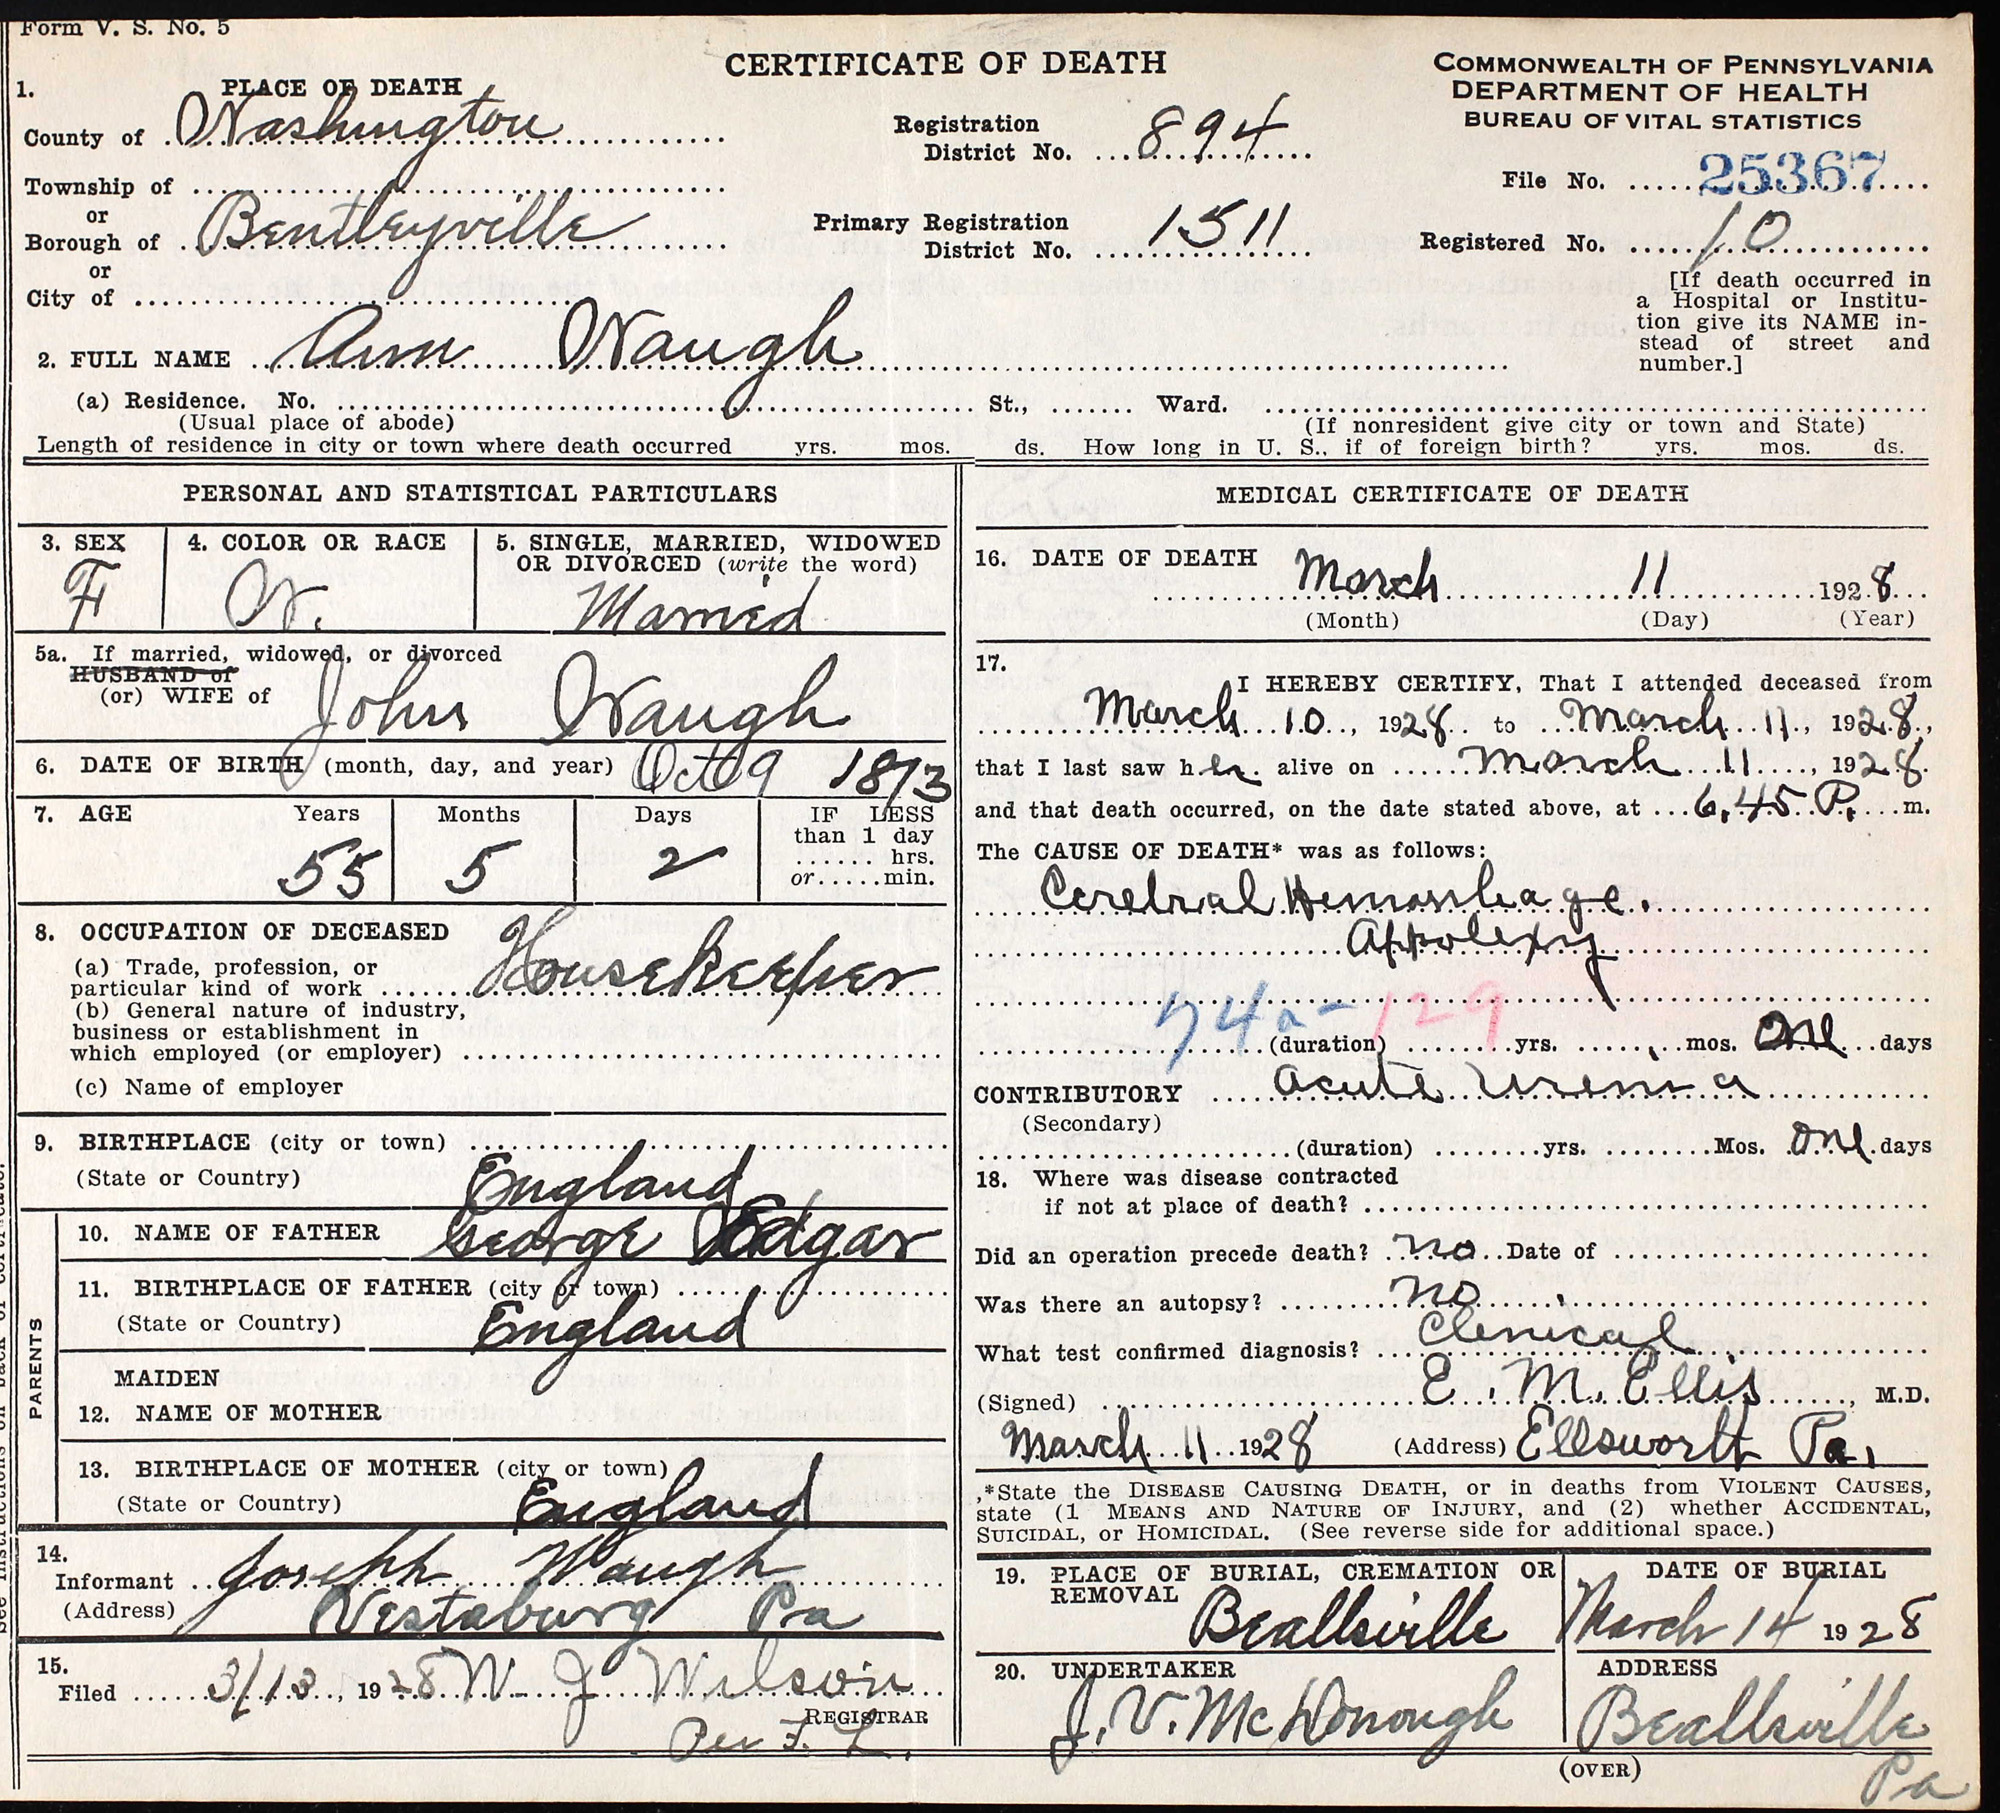 Form V. S. No. 5
CERTIFICATE OF DEATH
COMMONWEALTH OF PENNSYLVANIA
DEPARTMENT OF HEALTH
BUREAU OF VITAL STATISTICS
1. PLACE OF DEATH
County of Washington
Registration District No. 894
File No. 25367
Township of
or
Borough of Bentleyville
Primary Registration District No. 1511
Registered No. 10
or
City of
[If death occurred in a Hospital or Institution give its NAME instead of street and number.]
2. FULL NAME Ann Waugh
(a) Residence. No. St., Ward.
(Usual place of abode) (If nonresident give city or town and State)
Length of residence in city or town where death occurred yrs. mos. ds. How long in U. S., if of foreign birth? yrs. mos. ds.
PERSONAL AND STATISTICAL PARTICULARS
3. SEX
F
4. COLOR OR RACE
W.
5. SINGLE, MARRIED, WIDOWED
OR DIVORCED (write the word)
Married
5a. If married, widowed, or divorced
HUSBAND of
(or) WIFE of John Waugh
6. DATE OF BIRTH (month, day, and year) Oct 9 1873
7. AGE Years Months Days IF LESS
than 1 day
hrs.
or min.
55 5 2
8. OCCUPATION OF DECEASED
(a) Trade, profession, or
particular kind of work Housekeeper
(b) General nature of industry,
business or establishment in
which employed (or employer)
(c) Name of employer
9. BIRTHPLACE (city or town)
(State or Country) England
PARENTS
10. NAME OF FATHER George Edgar
11. BIRTHPLACE OF FATHER (city or town)
(State or Country) England
MAIDEN
12. NAME OF MOTHER
13. BIRTHPLACE OF MOTHER (city or town)
(State or Country) England
14.
Informant Joseph Waugh
(Address) Vestaburg Pa
15.
Filed 3/13, 1928 W. J Wilson
REGISTRAR
Per F. L.
MEDICAL CERTIFICATE OF DEATH
16. DATE OF DEATH March 11 1928
(Month) (Day) (Year)
17.
I HEREBY CERTIFY, That I attended deceased from
March 10, 1928 to March 11, 1928,
that I last saw her alive on March 11, 1928
and that death occurred, on the date stated above, at 6,45 P. m.
The CAUSE OF DEATH* was as follows:
Cerebral Hemorrhage.
Appolexy
74a-129
(duration) yrs. mos. One days
CONTRIBUTORY Acute Uremia
(Secondary)
(duration) yrs. Mos. One days
18. Where was disease contracted
if not at place of death?
Did an operation precede death? no Date of
Was there an autopsy? no
What test confirmed diagnosis? Clenical
(Signed) E. M. Ellis, M.D.
March 11 1928 (Address) Ellsworth Pa,
*State the DISEASE CAUSING DEATH, or in deaths from VIOLENT CAUSES,
state (1 MEANS AND NATURE OF INJURY, and (2) whether ACCIDENTAL,
SUICIDAL, or HOMICIDAL. (See reverse side for additional space.)
19. PLACE OF BURIAL, CREMATION OR
REMOVAL
Beallsville
DATE OF BURIAL
March 14 1928
20. UNDERTAKER
J. V. McDonough
ADDRESS
Beallsville
Pa
(OVER)